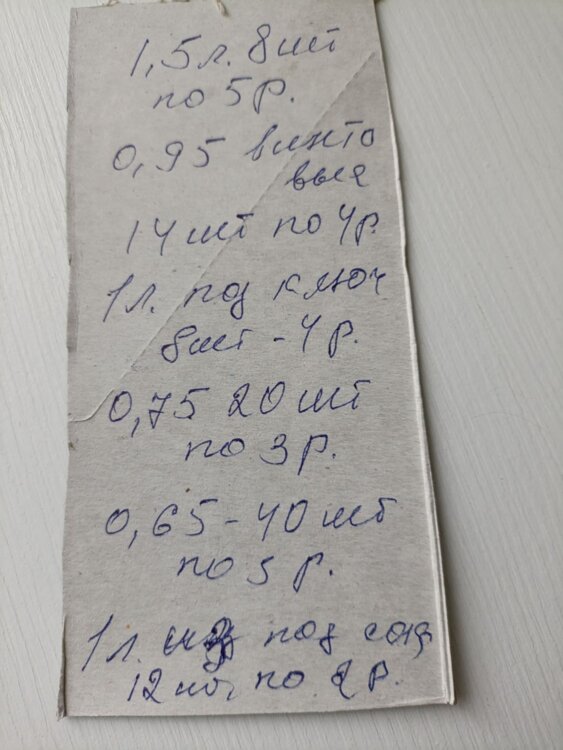 1,5 л. 8 шт
по 5 р.
0,95 винто
вые
14 шт по 4 р.
1 л. под ключ
8 шт - 4 р.
0,75 20 шт
по 3 р.
0,65 - 40 шт
по р.
1 л. из под
12 шт. по 2 р.